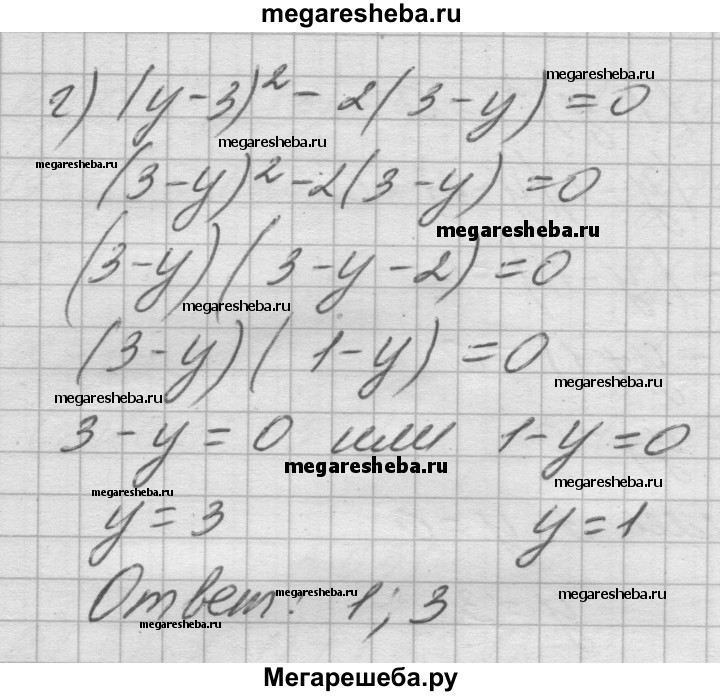 megaresheba.ru
г) (y-3)² - 2(3-y) = 0
megaresheba.ru
megaresheba.ru
megaresheba.ru
(3-y)² - 2(3-y) = 0
megaresheba.ru
(3-y)(3-y-2) = 0
megaresheba.ru
(3-y)(1-y) = 0
megaresheba.ru
megaresheba.ru
3-y = 0 или 1-y = 0
megaresheba.ru
megaresheba.ru
megaresheba.ru
y = 3 y = 1
Ответ: 1; 3
megaresheba.ru
megaresheba.ru
megaresheba.ru
Мегарешеба.ру